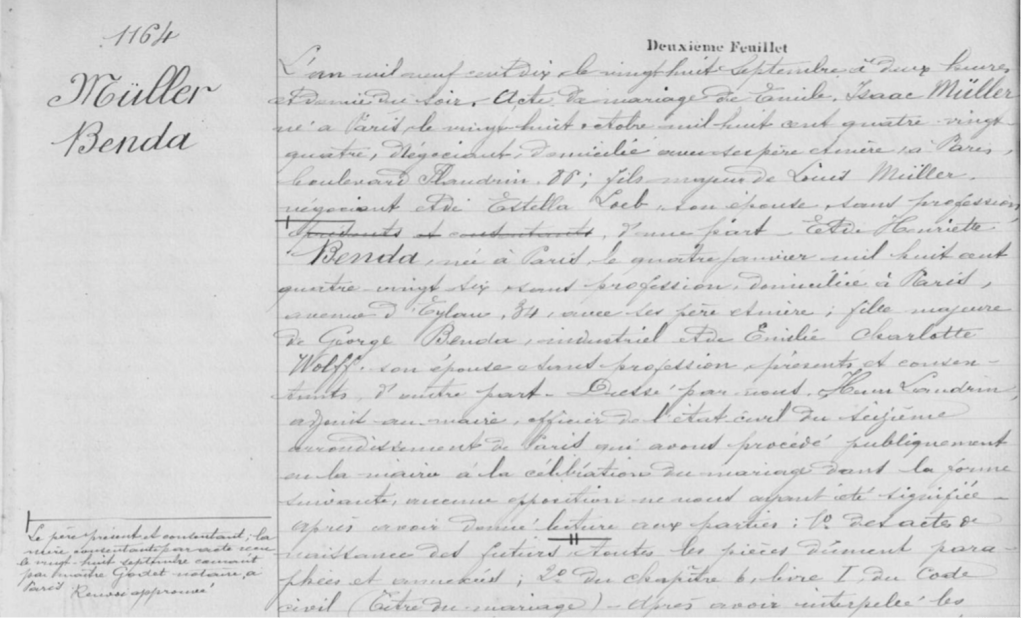 1164
Müller
Benda
Deuxième Feuillet
L'an mil neuf cent dix, le vingt huit Septembre à deux heures
et demie du soir. Acte de mariage de Emile, Isaac Müller
né à Paris, le vingt huit octobre mil huit cent quatre vingt
quatre, Négociant, domicilié avec ses père et mère, à Paris,
boulevard Flandrin, ; fils majeur de Louis Müller,
négociant et de Estella Loeb, son épouse, sans profession,
présents et consentants, d'une part - Et de Henriette
Benda, née à Paris, le quatre janvier mil huit cent
quatre vingt six, sans profession, domiciliée à Paris,
avenue d'Eylau, 34, avec ses père et mère ; fille majeure
de George Benda, industriel et de Emilie Charlotte
Wolff, son épouse, sans profession, présents et consen-
tants, d'autre part - Dressé par nous, Landrin,
adjoint au maire, officier de l'état civil du seizième
arrondissement de Paris qui avons procédé publiquement
en la mairie à la célébration du mariage dans la forme
suivante, aucune opposition ne nous ayant été signifiée -
Après avoir donné lecture aux parties : 1º des actes de
naissance des futurs, toutes les pièces dûment para-
phées et annexées ; 2º du chapitre 6, livre I, du Code
civil (titre du mariage) - Après avoir interpellé les
Le père présent et consentant, la
mère consentante par acte reçu
le vingt-huit septembre courant
par maître notaire, à
Paris Renvoi approuvé